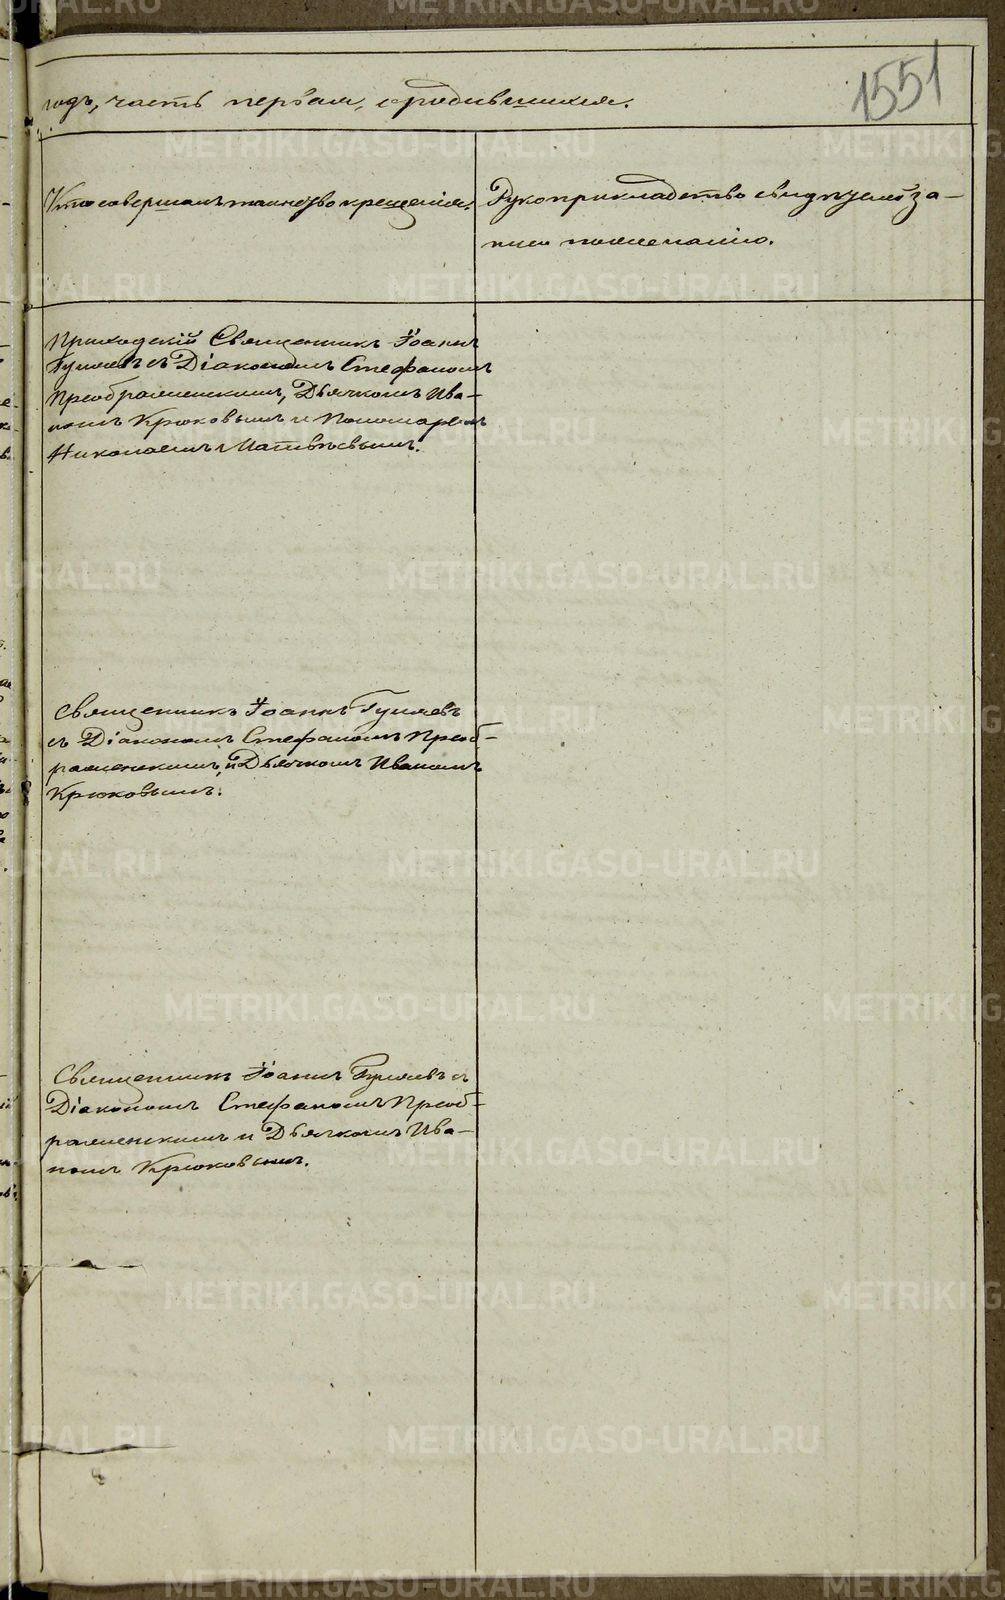 1551
годъ, часть первая, о родившихся.
Кто совершалъ таинство крещенія.
Рукоприкладство свидѣтелей за-
писи по желанію.
Приходскій Священникъ Іоаннъ
Гуляевъ съ Діакономъ Стефаномъ
Преображенскимъ, Дьячкомъ Ива-
номъ Крюковымъ и Пономаремъ
Николаемъ Матвѣевымъ.
Священникъ Іоаннъ Гуляевъ
съ Діакономъ Стефаномъ Преоб-
раженскимъ, и Дьячкомъ Иваномъ
Крюковымъ.
Священникъ Іоаннъ Гуляевъ съ
Діакономъ Стефаномъ Преоб-
раженскимъ и Дьячкомъ Ива-
номъ Крюковымъ.
METRIKI.GASO-URAL.RU